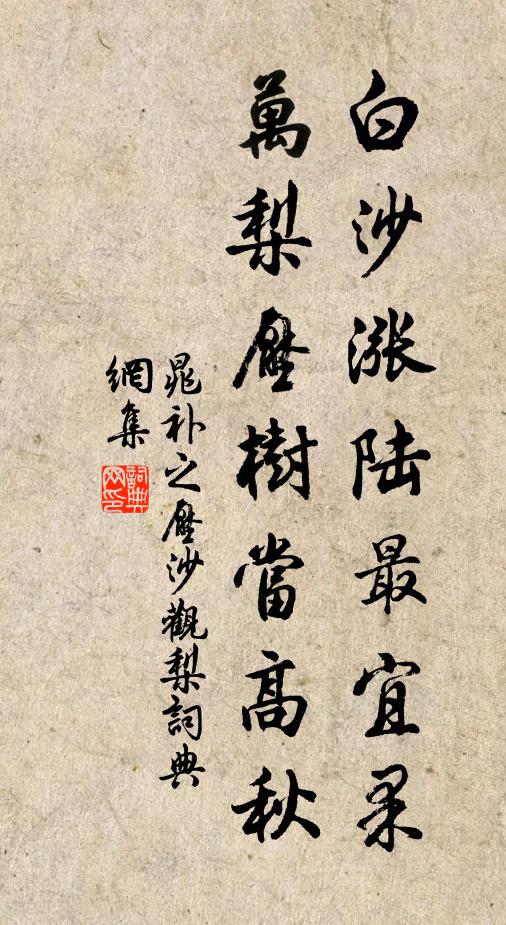 白沙漲陆最宜果
萬梨壓樹當高秋
晁补之壓沙觀梨詞典
網集
詞典
网印